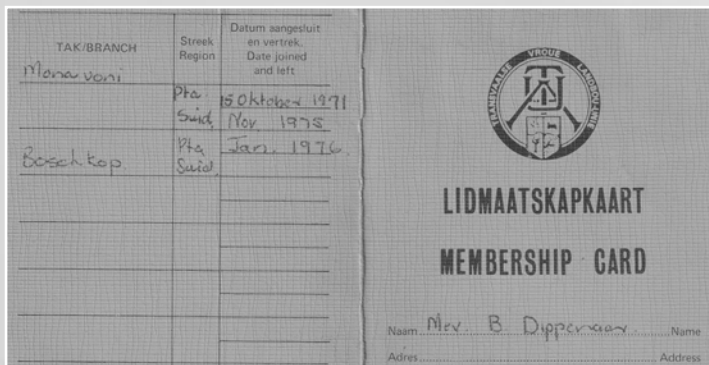 TAK/BRANCH
Streek
Region
Datum aangesluit
en vertrek.
Date joined
and left
Monavoni
Pta. Suid.
15 Oktober 1971
Nov. 1975
Boschkop.
Pta Suid.
Jan. 1976.
TRANSVAALSE VROUE LANDBOU-UNIE
LIDMAATSKAPKAART
MEMBERSHIP CARD
Naam Mev. B. Dippenaar. Name
Adres Address